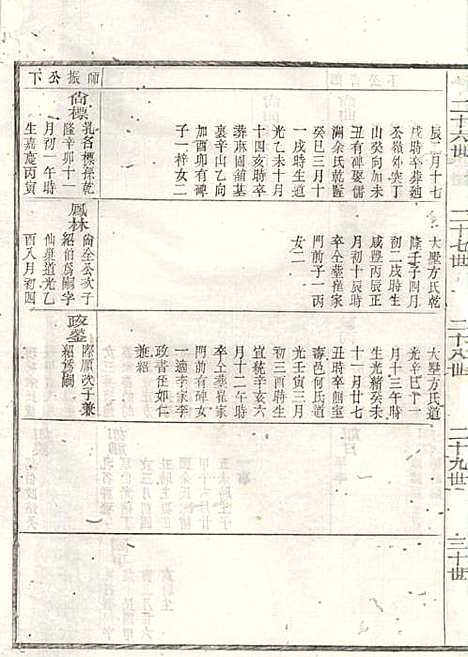 師振公下
二十六世
尙標
乳名標孫乾
隆辛卯十一
月初一午時
生嘉慶丙寅
辰二月十七
戌時卒葬廸
公嶺外突丁
山癸向加未
丑有碑娶儒
澗余氏乾隆
癸巳三月十
一戌時生道
光乙未十月
十四亥時卒
葬麻園舖基
裏辛山乙向
加酉卯有碑
子一梓女二
二十七世
鳳林
尙全公次子
紹伯爲嗣字
仙巢道光乙
酉八月初四
大墅方氏乾
隆壬子四月
初二戌時生
咸豐丙辰正
月初十辰時
卒仝葬崔家
門前子一丙
女二
二十八世
政鑾
際鳳次子兼
紹秀嗣
大墅方氏道
光辛巳十一
月十三午時
生光緒癸未
十一月廿七
丑時卒側室
壽邑何氏道
光壬寅三月
初三酉時生
宣統辛亥六
月十二午時
卒仝葬崔家
門前有碑女
一適李家李
政書在如仁
兼紹
二十九世
三十世